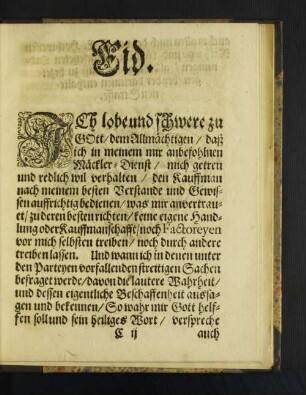 Eid.
ICh lobe und schwere zu
GOtt / dem Allmächtigen / daß
ich in meinem mir anbefohlnen
Mäckler-Dienst / mich getreu
und redlich wil verhalten / den Kauffman
nach meinem besten Verstande und Gewis-
sen auffrichtig bedienen / was mir anvertrau-
et / zu deren besten richten / keine eigene Hand-
lung oder Kauffmanschafft / noch Factoreyen
vor mich selbsten treiben / noch durch andere
treiben lassen. Und wann ich in denen unter
den Parteyen vorfallenden streitigen Sachen
befraget werde / davon die lautere Wahrheit /
und dessen eigentliche Beschaffenheit aussa-
gen und bekennen / So wahr mir Gott helf-
fen soll und sein heiliges Wort / verspreche
C ij auch